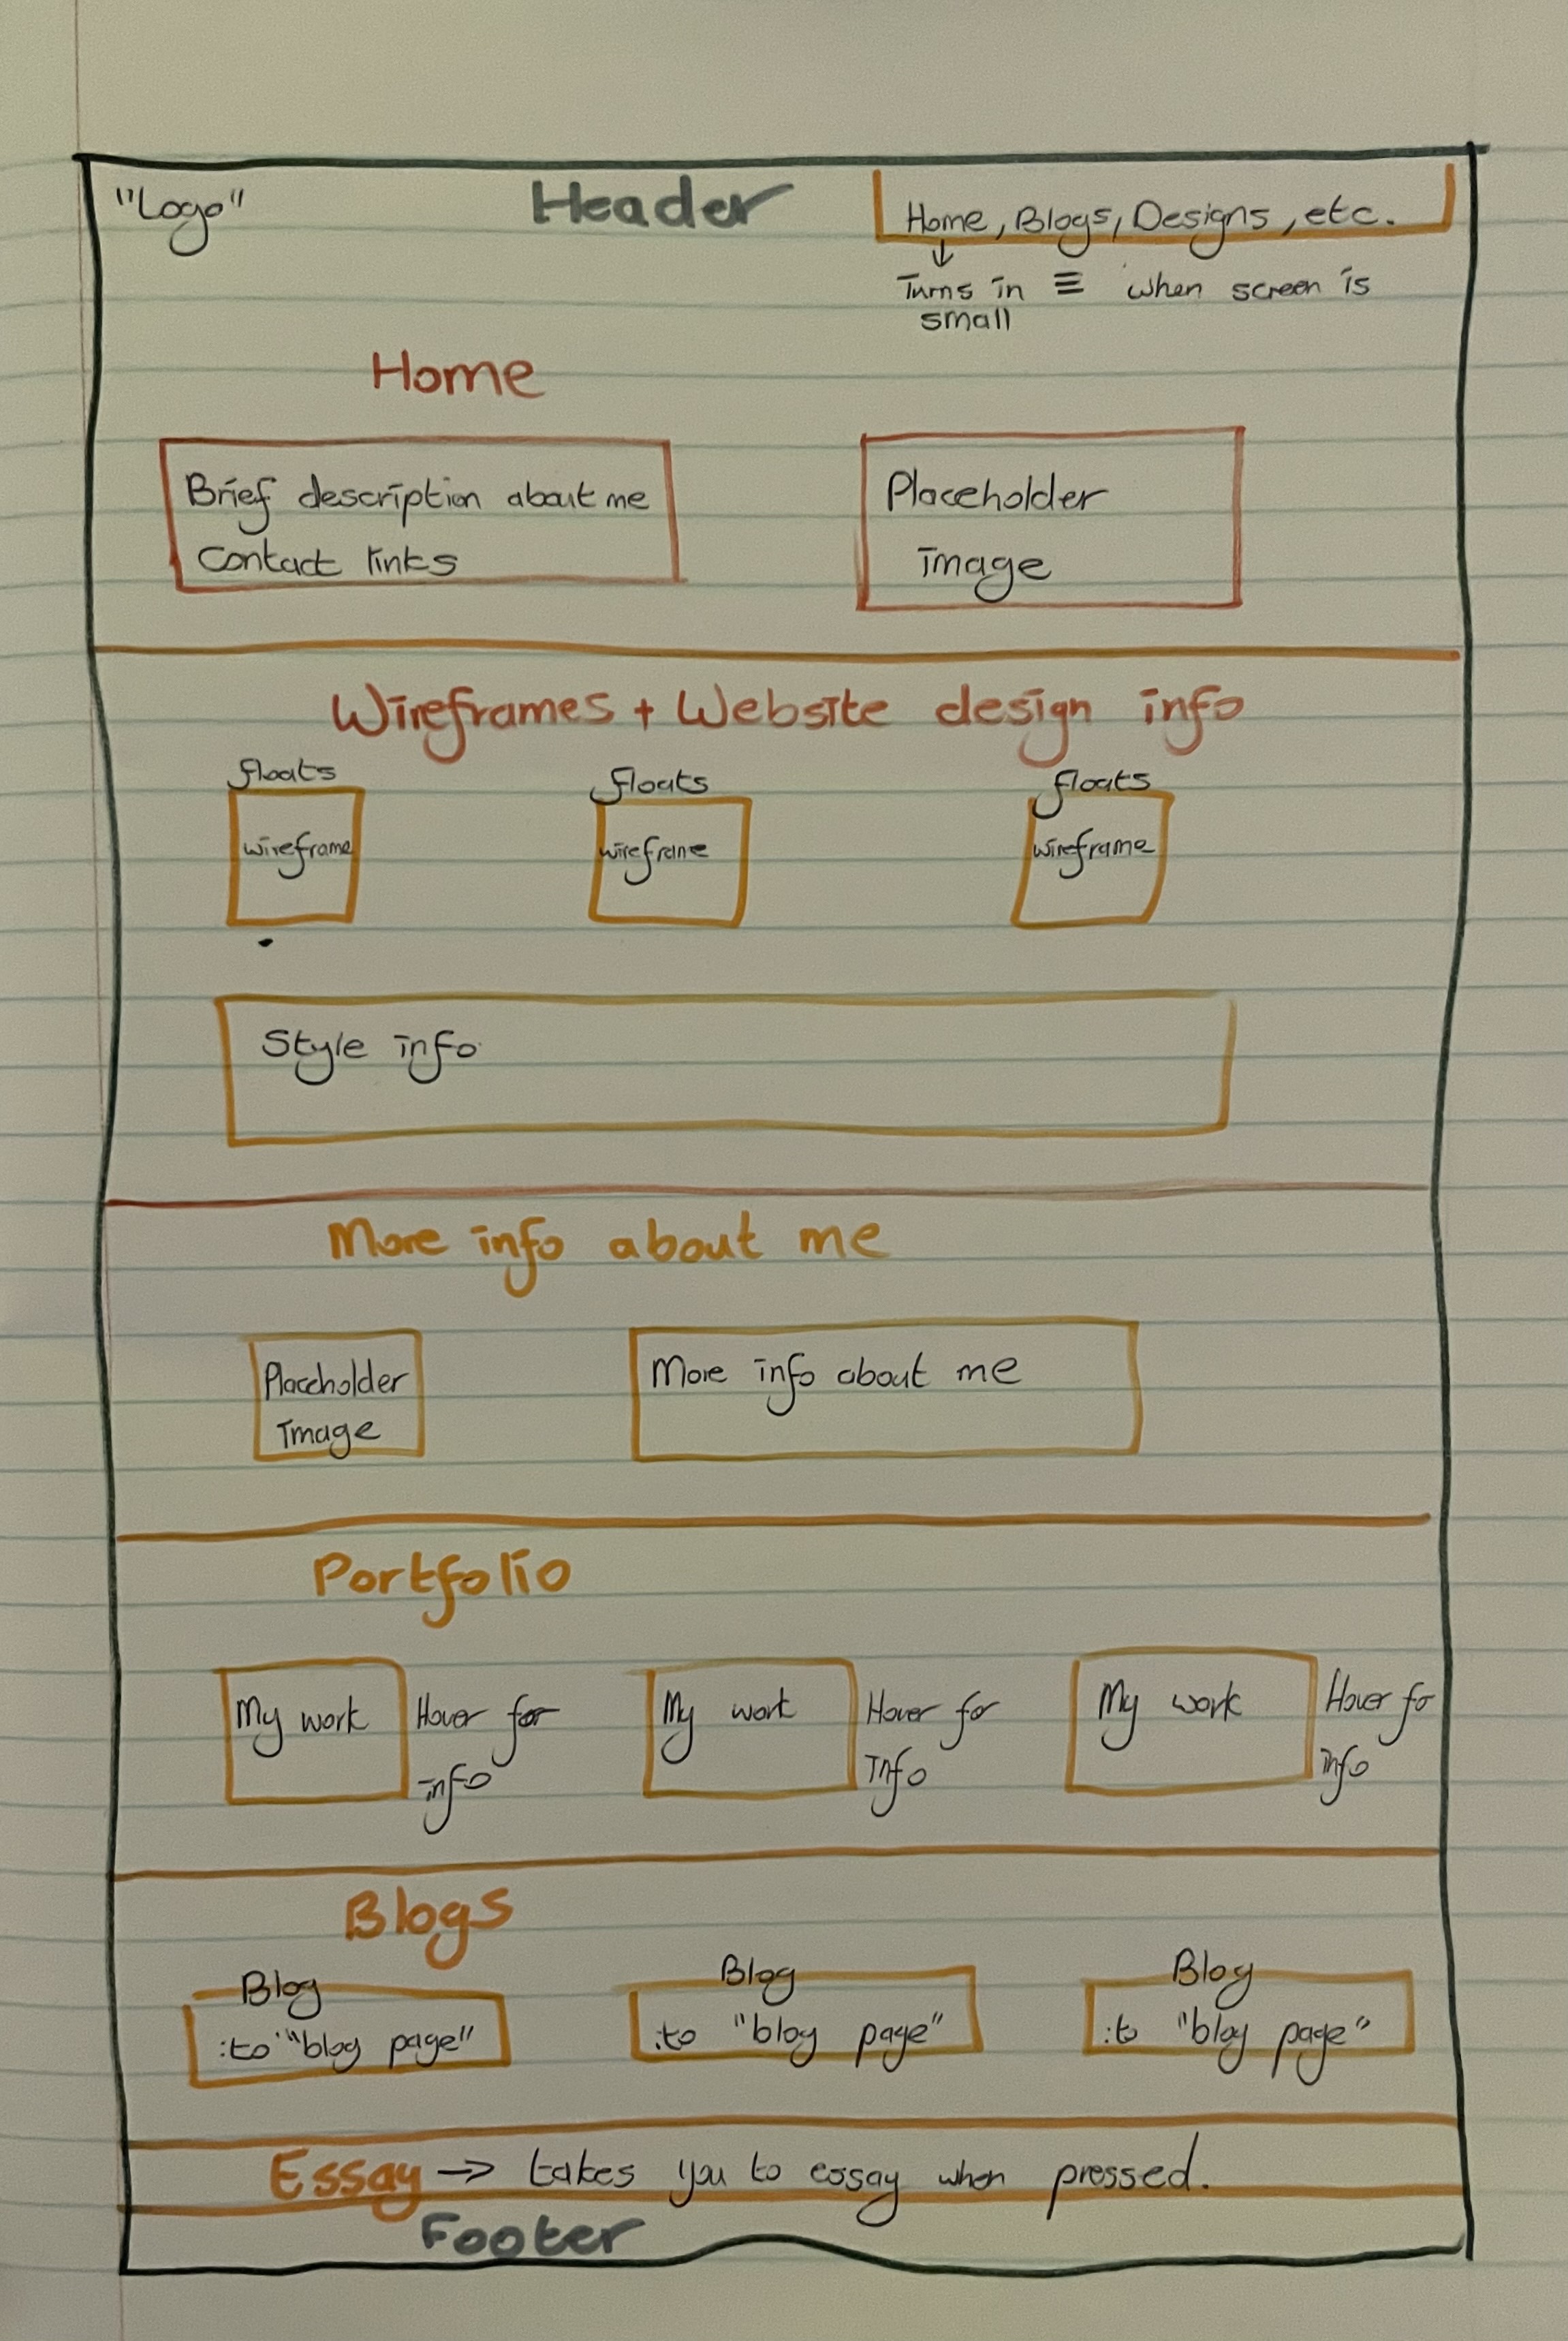 "Logo"
Header
Home, Blogs, Designs, etc.
↓
Turns in ≡ when screen is
small
Home
Brief description about me
Contact links
Placeholder
image
Wireframes + Website design info
floats
wireframe
floats
wireframe
floats
wireframe
Style info
More info about me
Placeholder
Image
More info about me
Portfolio
My work
Hover for
info
My work
Hover for
Info
My work
Hover fo
info
Blogs
Blog
:to "blog page"
Blog
:to "blog page"
Blog
:to "blog page"
Essay → takes you to essay when pressed.
Footer